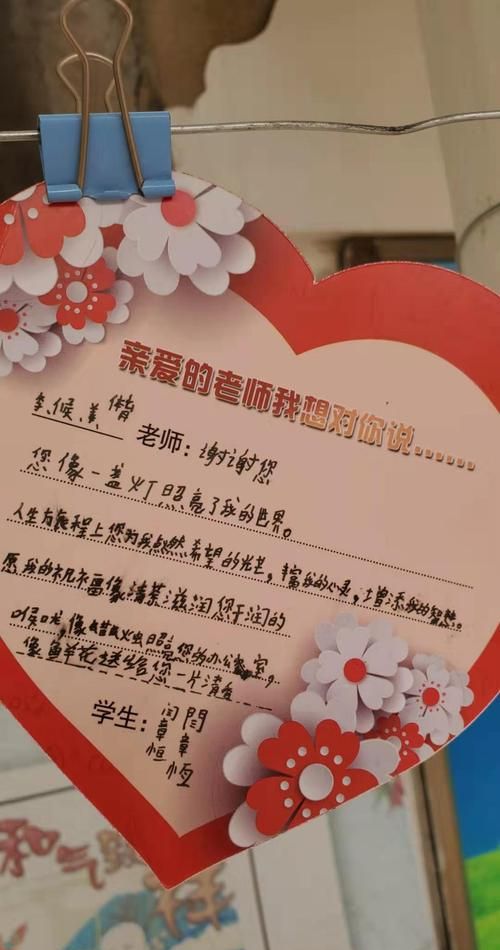 亲爱的老师我想对你说......
李候美 老师：谢谢您
您像一盏灯照亮了我的世界。
人生方旅程上您为我点燃希望的光芒，丰富我的心灵，增添我的智慧。
愿我的祝福像清茶滋润您干润的
喉咙，像萤火虫照亮您的办公室，
像鲜花送给您一片清香
学生：闫章恒 闫章恒
和气